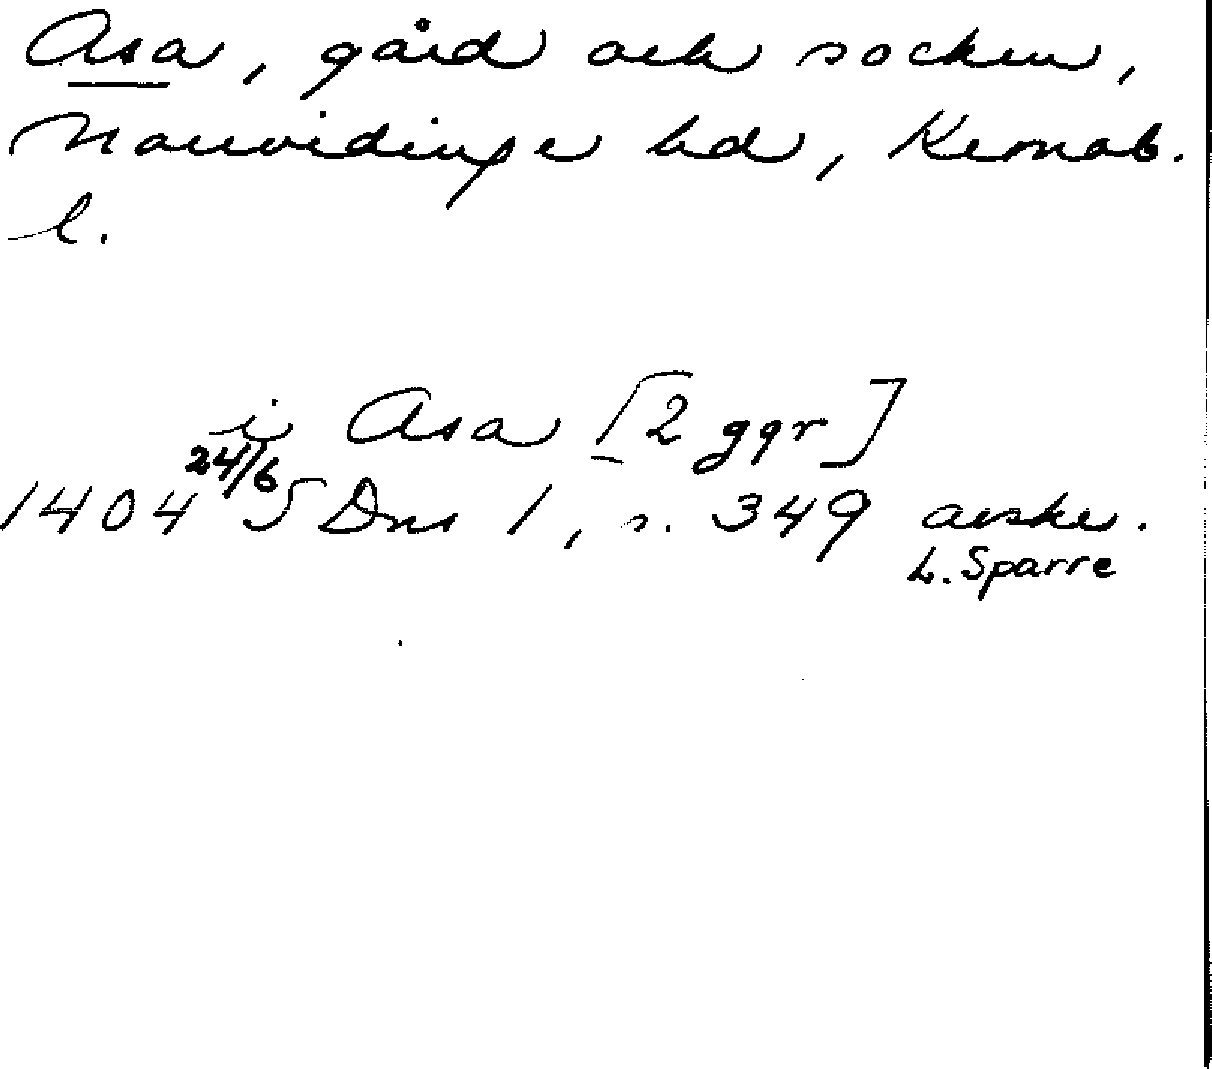 Asa, gård och socken,
Norrvidinge hd, Kronob.
l.
i Asa [2 ggr]
1404 24/6 SDns 1, s. 349 avskr.
L. Sparre